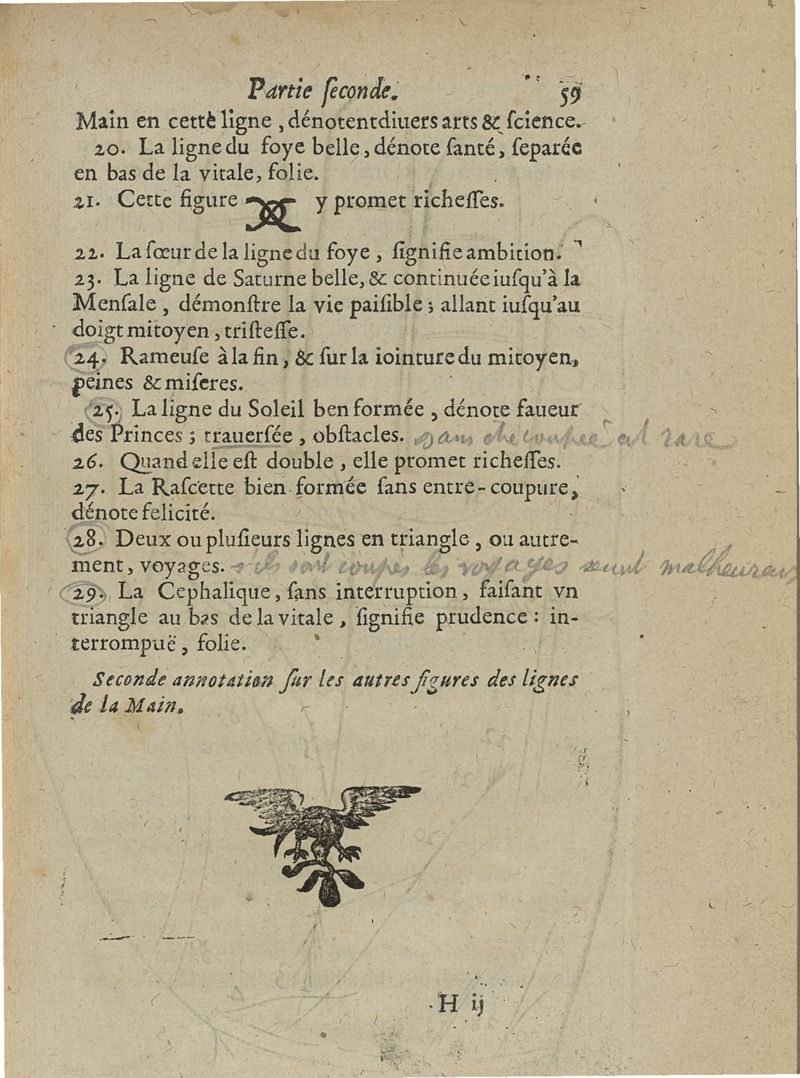 Partie ſeconde. 59
Main en cettè ligne, dénotent diuers arts & ſcience.
20. La ligne du foye belle, dénote ſanté, ſeparée
en bas de la vitale, folie.
21. Cette figure y promet richeſſes.
22. La ſœur de la ligne du foye, ſignifie ambition.
23. La ligne de Saturne belle, & continuée iuſqu'à la
Menſale, démonſtre la vie paiſible; allant iuſqu'au
doigt mitoyen, triſteſſe.
24. Rameuſe à la fin, & ſur la iointure du mitoyen,
peines & miſeres.
25. La ligne du Soleil ben formée, dénote faueur
des Princes; trauerſée, obſtacles. coupée est rare
26. Quand elle eſt double, elle promet richeſſes.
27. La Raſcette bien formée ſans entre-coupure,
dénote felicité.
28. Deux ou pluſieurs lignes en triangle, ou autre-
ment, voyages. s'ils sont coupés les voyages seront malheureux
29. La Cephalique, ſans interruption, faiſant vn
triangle au bas de la vitale, ſignifie prudence: in-
terrompuë, folie.
Seconde annotation ſur les autres figures des lignes
de la Main.
H ij